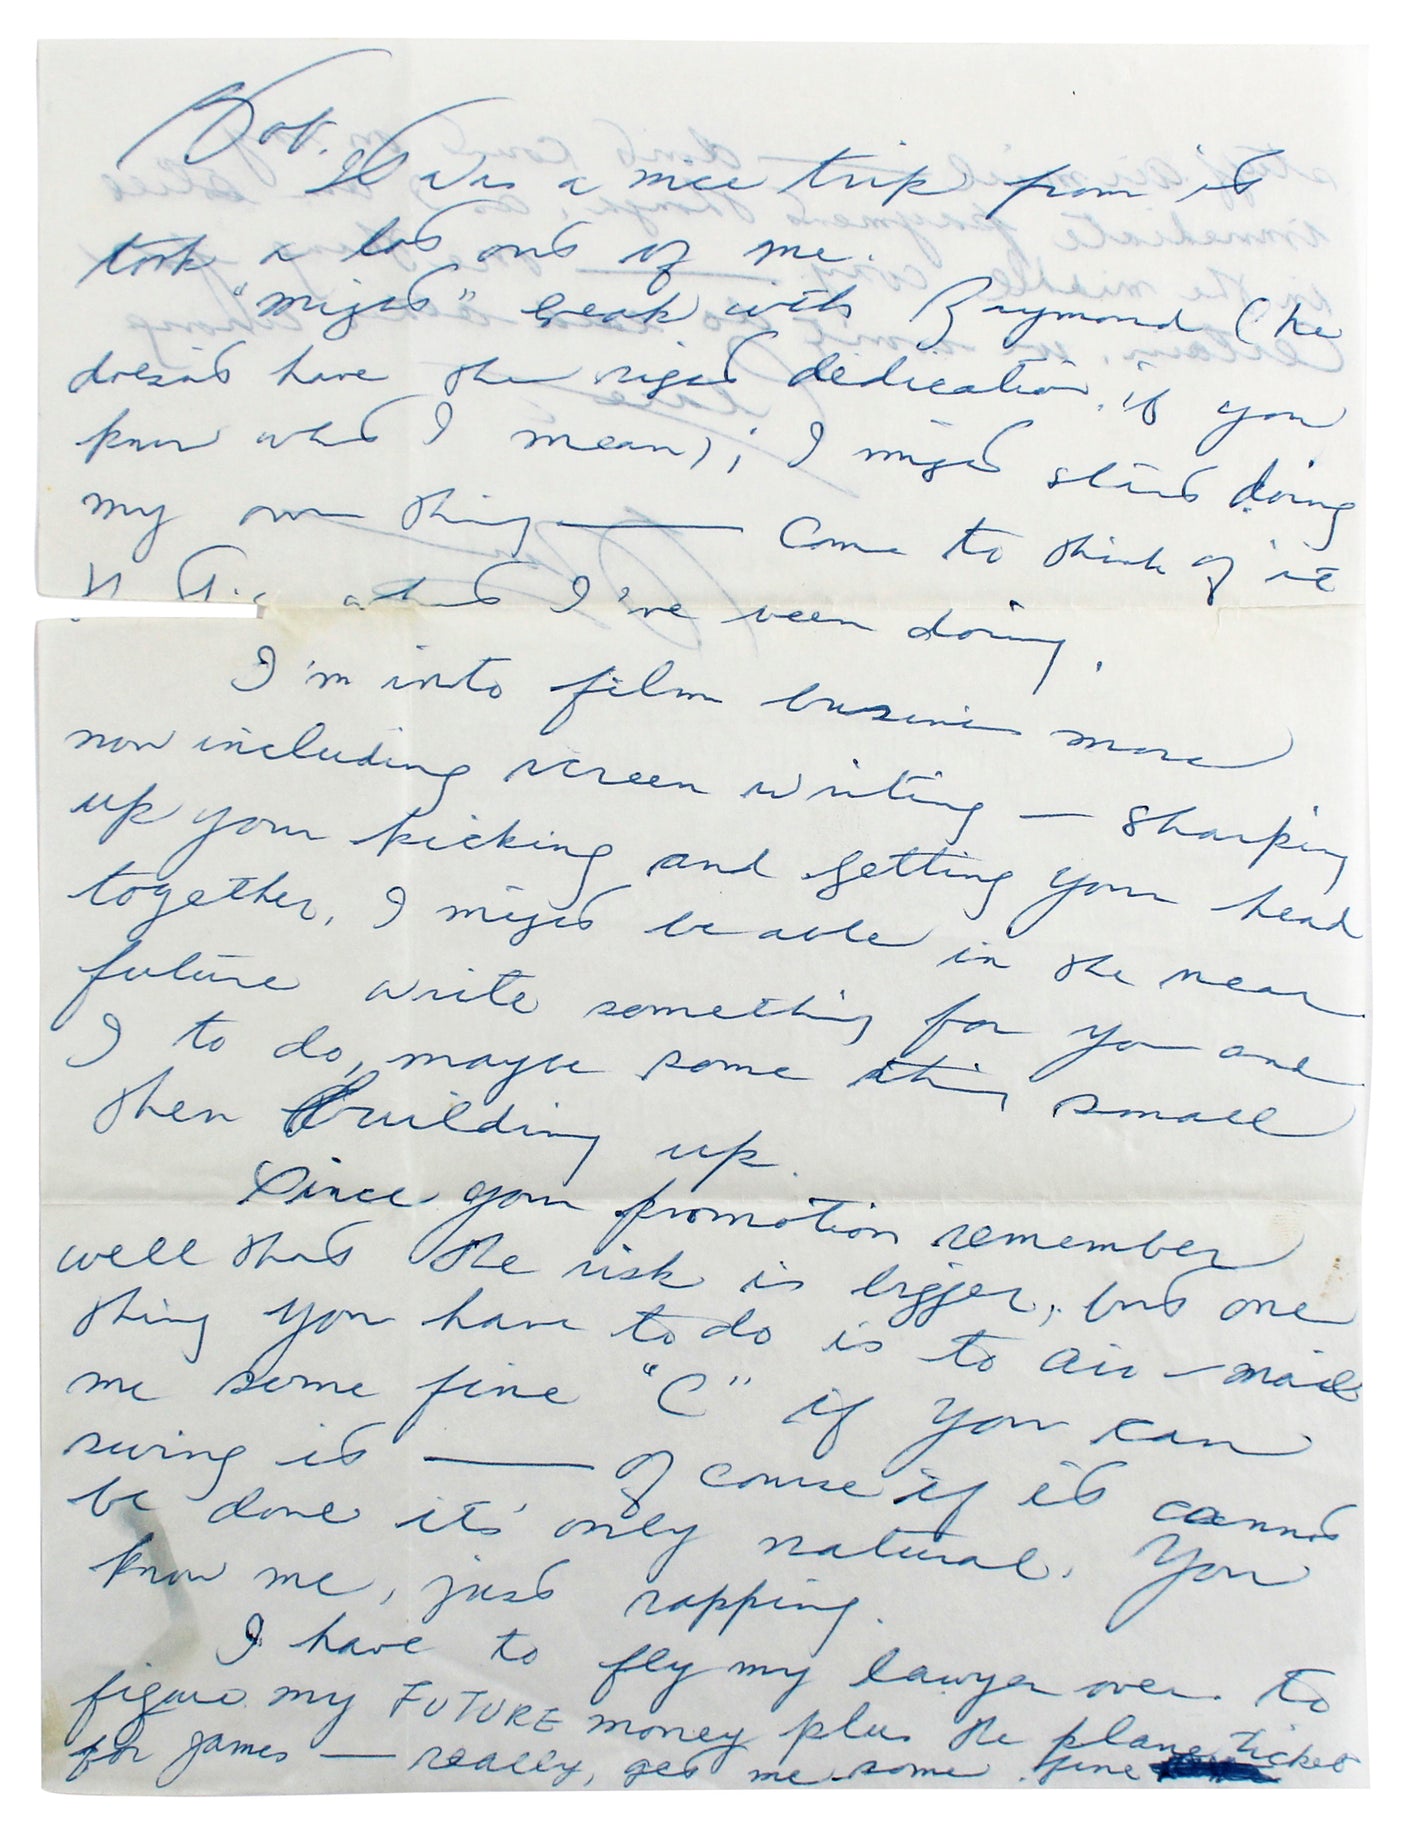 Bob.
It was a nice trip from it
took a lot out of me.
"might" break with Raymond (he
doesn't have the right dedication, if you
know what I mean); I might start doing
my own thing — Come to think of it
what I've been doing.
I'm into film business more
now including screen writing — sharping
up your kicking and getting your head
together, I might be able in the near
future write something for you and
I to do, maybe some thing small
then building up.
Since your promotion remember
well that the risk is bigger, but one
thing you have to do is to air-mail
me some fine "C" if you can
swing it — Of course if it cannot
be done it's only natural. You
know me, just rapping.
I have to fly my lawyer over to
figure my FUTURE money plus the plane ticket
for James — really, get me some fine